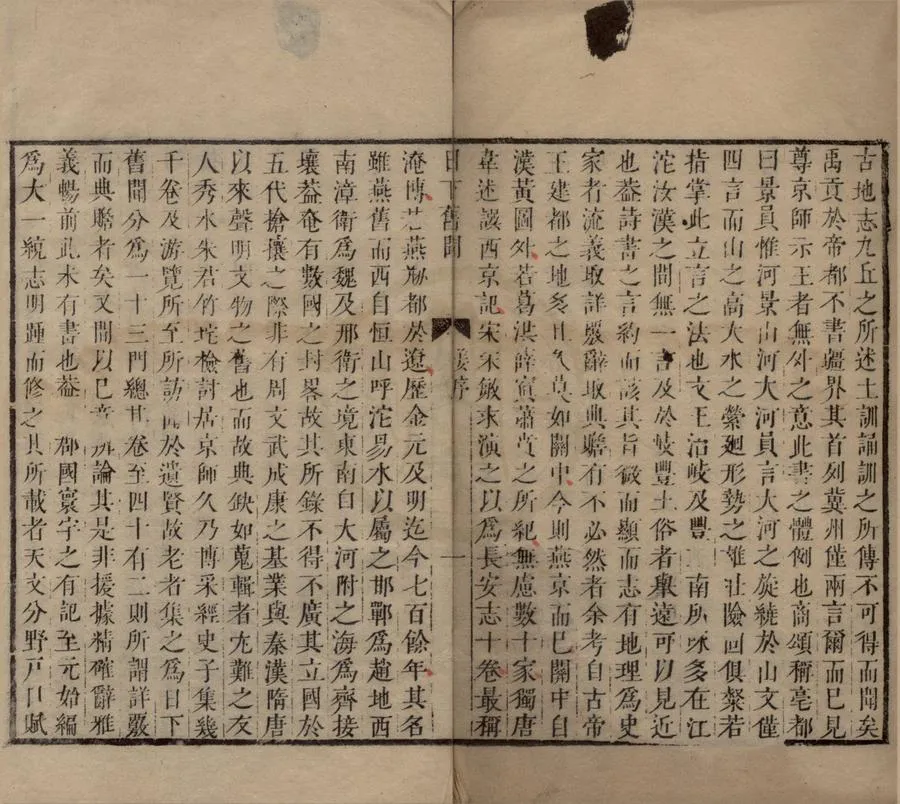 古地志九丘之所述土訓誦訓之所傳不可得而聞矣
禹貢於帝都不書疆界其首列冀州僅兩言爾而已見
尊京師示王者無外之意此書之體例也商頌稱亳都
曰景員惟河景山河大河員言大河之旋繞於山文僅
四言而山之高大水之縈廻形勢之雄壯險固俱粲若
指掌此立言之法也文王治岐及豐 南所咏多在江
沱汝漢之間無一言及於岐豐土俗者舉遠可以見近
也葢詩書之言約而該其旨微而顯而志有地理為史
家者流義取詳覈辭取典贍有不必然者余考自古帝
王建都之地多且久莫如關中今則燕京而已關中自
漢黃圖外若葛洪薛寘蕭賁之所紀無慮數十家獨唐
韋述譔西京記宋宋敏求演之以為長安志十卷最稱
日下舊聞 序 一
淹博若燕剏都於遼歷金元及明迄今七百餘年其名
雖燕舊而西自恒山呼沱易水以屬之邯鄲為趙地西
南漳衛為魏及邢衛之境東南自大河附之海為齊接
壤葢奄有數國之封畧故其所錄不得不廣其立國於
五代搶攘之際非有周文武成康之基業與秦漢隋唐
以來聲明文物之舊也而故典缺如蒐輯者尤難之友
人秀水朱君竹垞檢討居京師久乃博采經史子集幾
千卷及游覽所至所訪聞於遺賢故老者集之為日下
舊聞分為一十三門總其卷至四十有二則所謂詳覈
而典贍者矣又間以已意辨論其是非援據精確辭雅
義暢前此未有書也葢 郡國寰宇之有記至元始編
為大一統志明踵而修之其所載者天文分野戶口賦